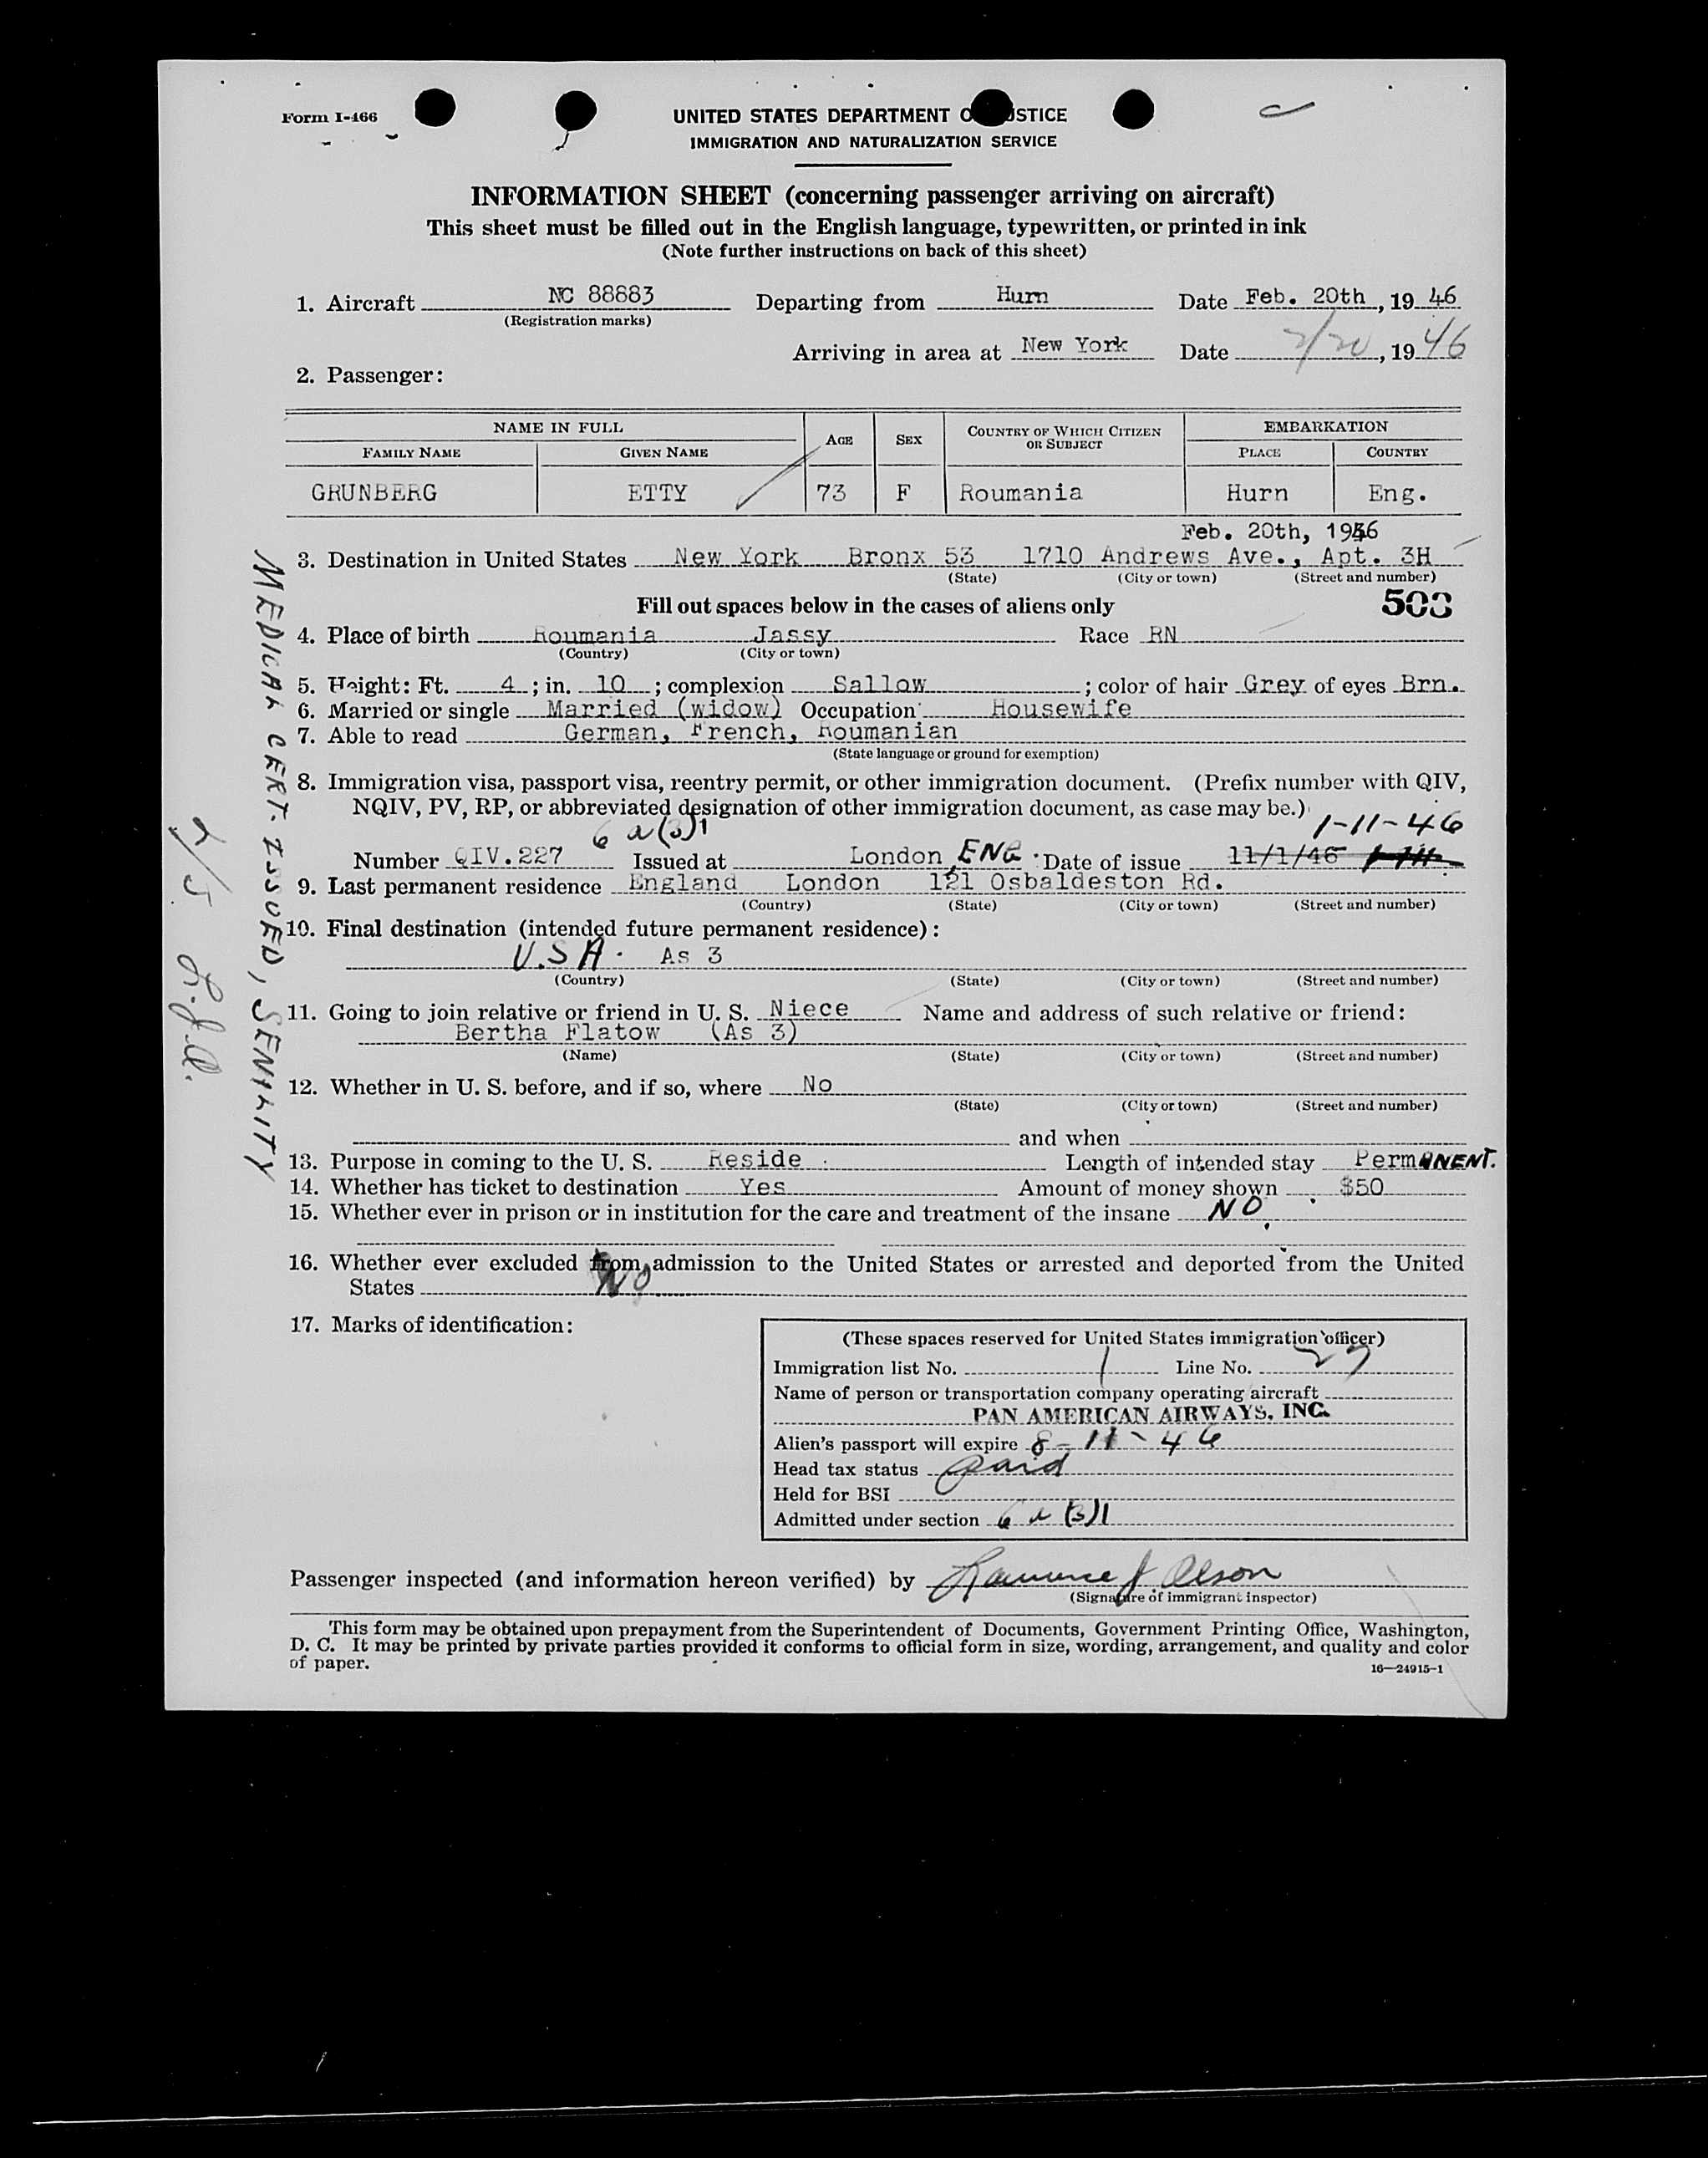 Form I-466
UNITED STATES DEPARTMENT O STICE
IMMIGRATION AND NATURALIZATION SERVICE
INFORMATION SHEET (concerning passenger arriving on aircraft)
This sheet must be filled out in the English language, typewritten, or printed in ink
(Note further instructions on back of this sheet)
1. Aircraft NC 88883 Departing from Hurn Date Feb. 20th, 19 46
(Registration marks)
Arriving in area at New York Date 2/20, 19 46
2. Passenger:
NAME IN FULL AGE SEX COUNTRY OF WHICH CITIZEN OR SUBJECT EMBARKATION
FAMILY NAME GIVEN NAME PLACE COUNTRY
GRUNBERG ETTY 73 F Roumania Hurn Eng.
Feb. 20th, 1946
3. Destination in United States New York Bronx 53 1710 Andrews Ave., Apt. 3H
(State) (City or town) (Street and number)
Fill out spaces below in the cases of aliens only 503
4. Place of birth Roumania Jassy Race RN
(Country) (City or town)
5. Height: Ft. 4; in. 10; complexion Sallow; color of hair Grey of eyes Brn.
6. Married or single Married (widow) Occupation Housewife
7. Able to read German, French, Roumanian
(State language or ground for exemption)
8. Immigration visa, passport visa, reentry permit, or other immigration document. (Prefix number with QIV,
NQIV, PV, RP, or abbreviated designation of other immigration document, as case may be.)
6 a(3)1 1-11-46
Number QIV.227 Issued at London, ENG. Date of issue 11/1/46
9. Last permanent residence England London 121 Osbaldeston Rd.
(Country) (State) (City or town) (Street and number)
10. Final destination (intended future permanent residence):
U.S.A. As 3
(Country) (State) (City or town) (Street and number)
11. Going to join relative or friend in U. S. Niece Name and address of such relative or friend:
Bertha Flatow (As 3)
(Name) (State) (City or town) (Street and number)
12. Whether in U. S. before, and if so, where No
(State) (City or town) (Street and number)
and when
13. Purpose in coming to the U. S. Reside Length of intended stay PermANENT.
14. Whether has ticket to destination Yes Amount of money shown $50
15. Whether ever in prison or in institution for the care and treatment of the insane NO
16. Whether ever excluded from admission to the United States or arrested and deported from the United
States NO
17. Marks of identification:
(These spaces reserved for United States immigration officer)
Immigration list No. 1 Line No. 27
Name of person or transportation company operating aircraft
PAN AMERICAN AIRWAYS, INC.
Alien's passport will expire 8-11-46
Head tax status Paid
Held for BSI
Admitted under section 6 a (3)1
Passenger inspected (and information hereon verified) by Lawrence J. Olson
(Signature of immigrant inspector)
This form may be obtained upon prepayment from the Superintendent of Documents, Government Printing Office, Washington,
D. C. It may be printed by private parties provided it conforms to official form in size, wording, arrangement, and quality and color
of paper.
16—24915-1
MEDICAL CERT. ISSUED, SENILITY
2/5 L.J.O.